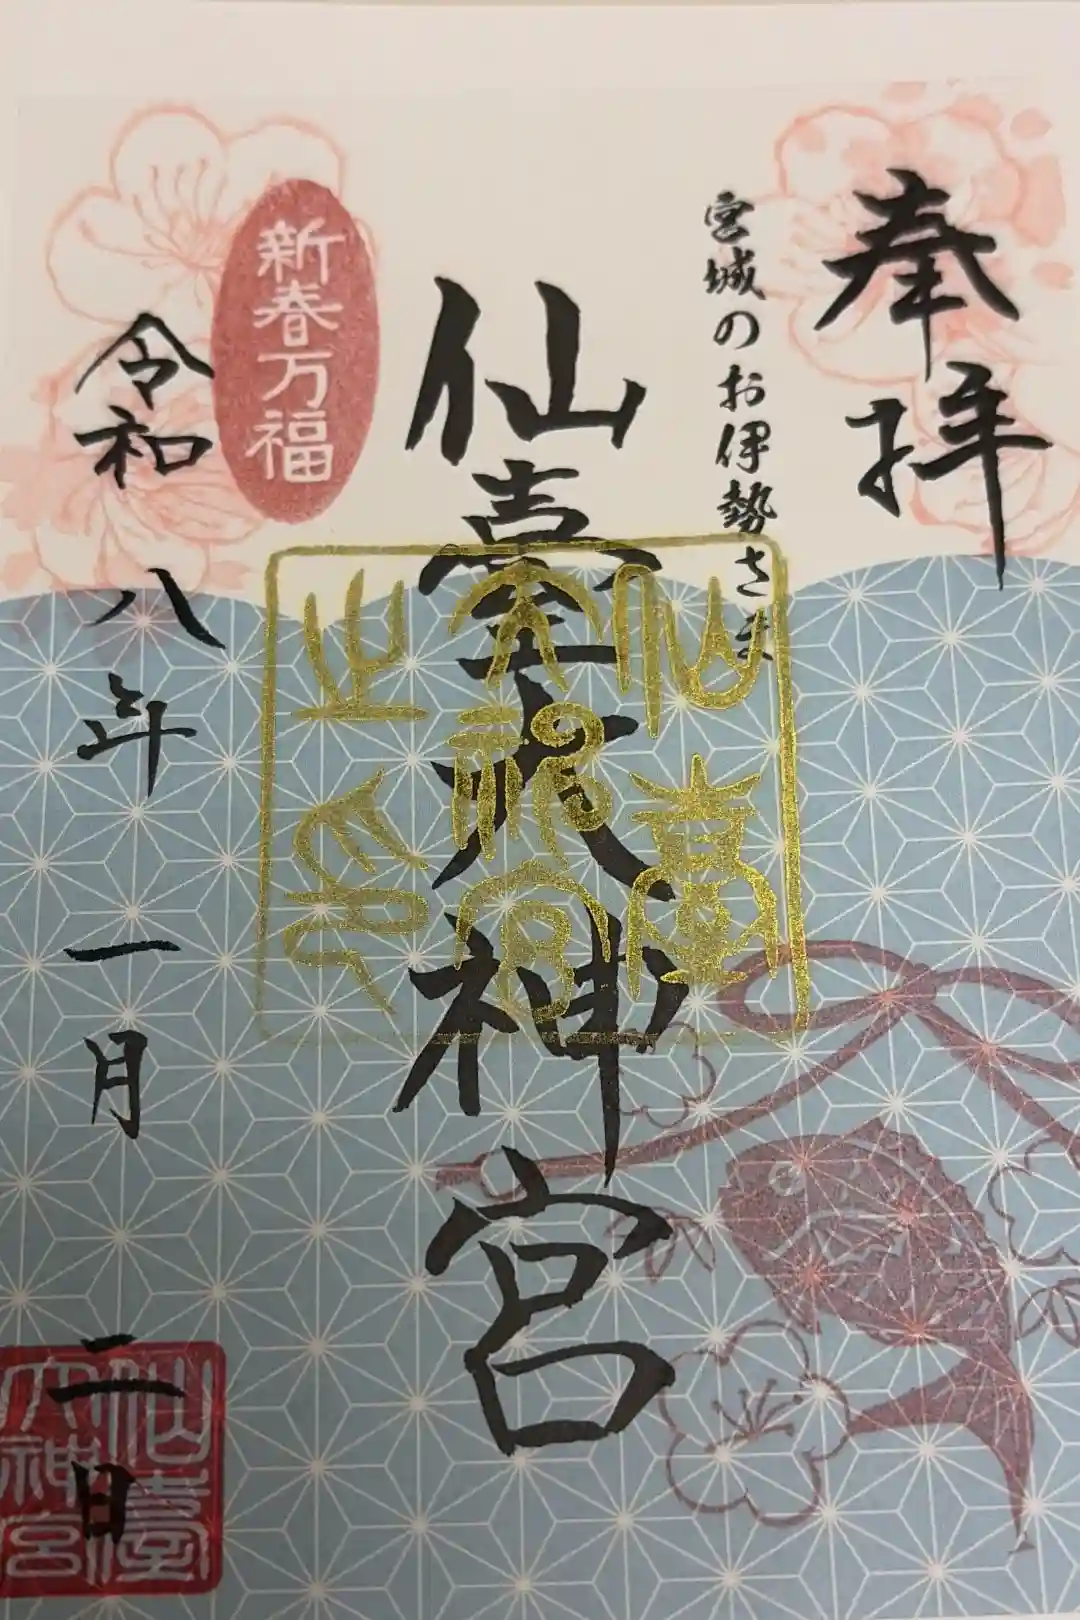 奉拝
宮城のお伊勢さま
仙臺大神宮
新春万福
令和八年一月二日
仙臺
大神宮
之印
仙臺
大神宮